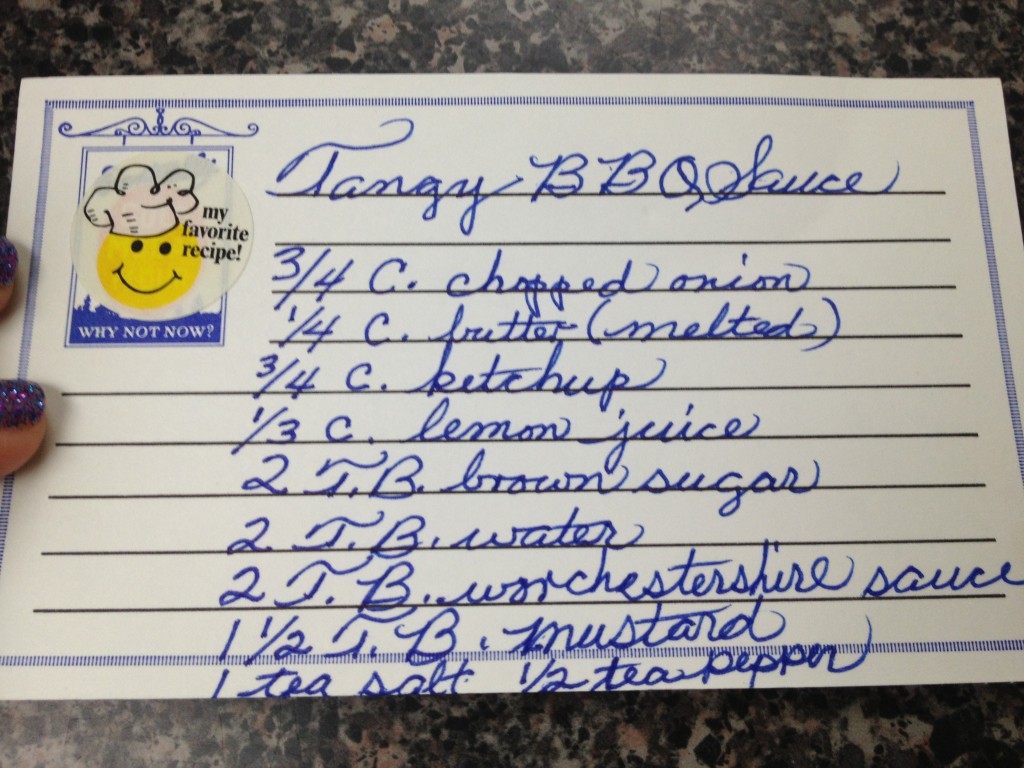 my
favorite
recipe!
WHY NOT NOW?
Tangy BBQ Sauce
3/4 C. chopped onion
1/4 C. butter (melted)
3/4 C. ketchup
1/3 C. lemon juice
2 T.B. brown sugar
2 T.B. water
2 T.B. worchestershire sauce
1 1/2 T.B. mustard
1 tea salt 1/2 tea pepper